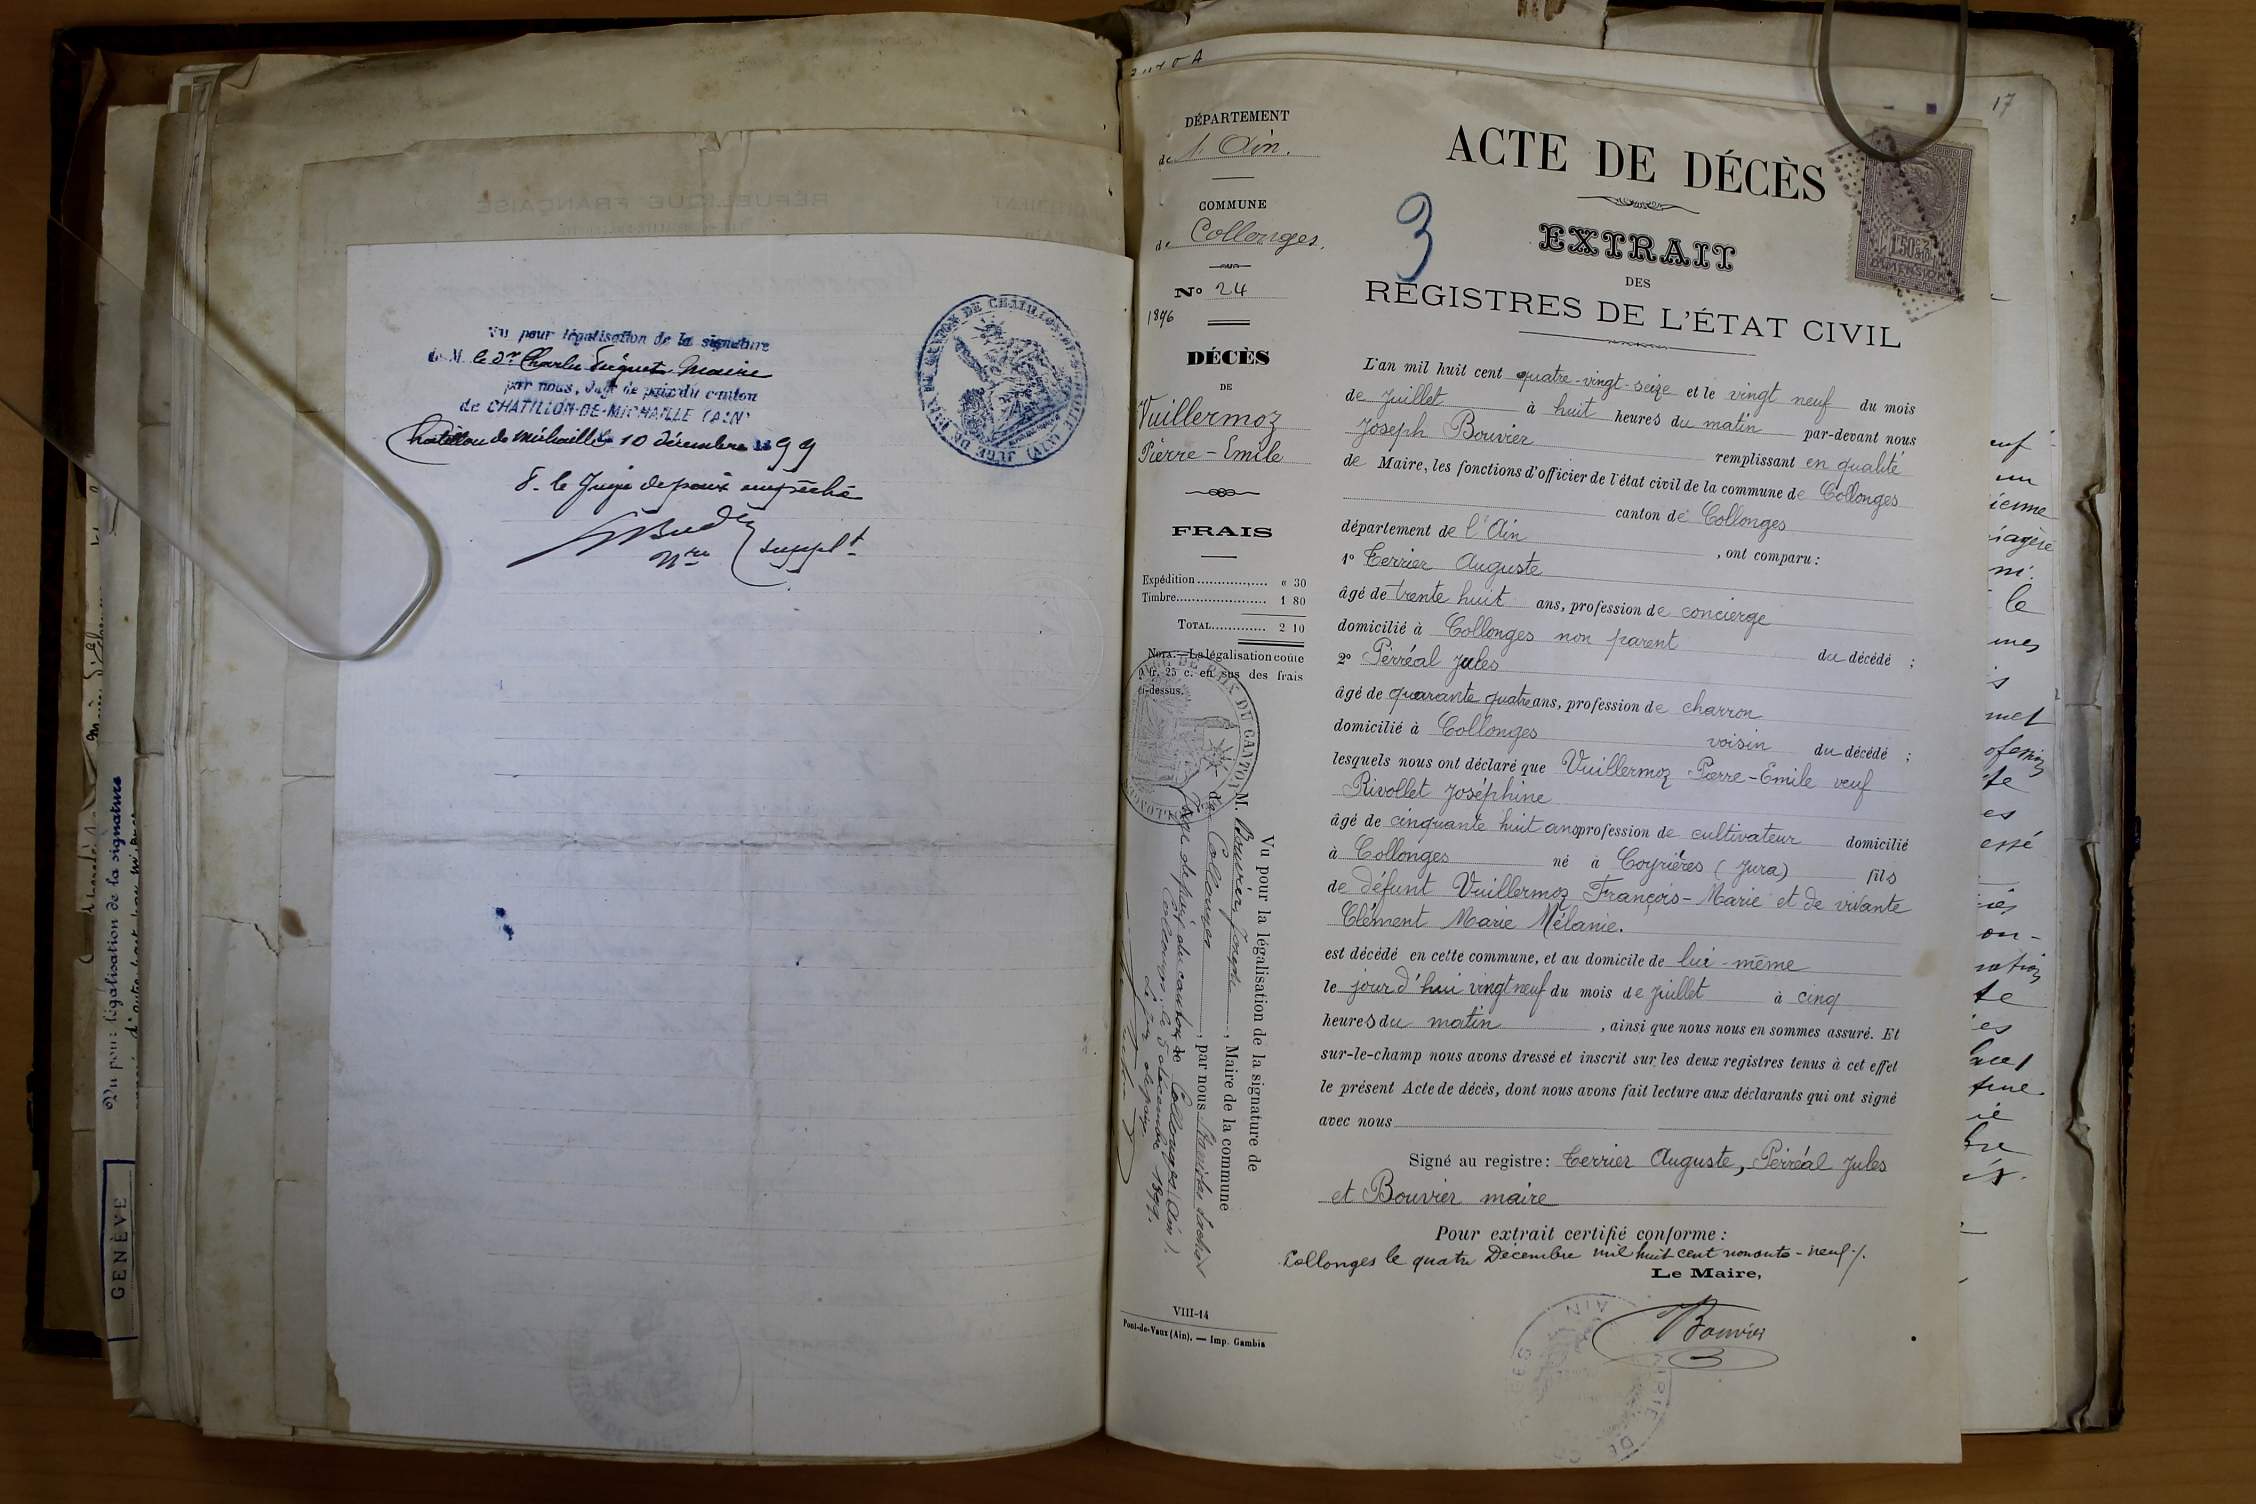 Vu pour légalisation de la signature
de M. le Dr Charles Maire
par nous, Juge de paix du canton
de CHATILLON-DE-MICHAILLE (AIN)
Chatillon de Michaille 10 décembre 1899
P. le Juge de paix empêché
Suppl t
Vu pour légalisation de la signature
GENÈVE
17
DÉPARTEMENT
de l'Ain.
COMMUNE
de Collonges.
No 24
1896
DÉCÈS
DE
Vuillermoz
Pierre-Emile
FRAIS
Expédition............ « 30
Timbre............ 1 80
TOTAL............ 2 10
NOTA.—La légalisation coûte
0 fr. 25 c. en sus des frais
ci-dessus.
Vu pour la légalisation de la signature de
M. Bouvier Joseph, Maire de la commune
de Collonges, par nous
Juge de paix du canton de Collonges (Ain).
Collonges, le 5 décembre 1899.
Le juge de paix,
VIII-14
Pont-de-Vaux (Ain). — Imp. Gambia
ACTE DE DÉCÈS
3
EXTRAIT
DES
REGISTRES DE L'ÉTAT CIVIL
1f50c
DIMENSION
L'an mil huit cent quatre-vingt-seize et le vingt neuf du mois
de Juillet à huit heures du matin par-devant nous
Joseph Bouvier remplissant en qualité
de Maire, les fonctions d'officier de l'état civil de la commune de Collonges
canton de Collonges
département de l'Ain, ont comparu :
1° Terrier Auguste
âgé de trente huit ans, profession de concierge
domicilié à Collonges non parent du décédé ;
2° Perréal Jules
âgé de quarante quatre ans, profession de charron
domicilié à Collonges voisin du décédé ;
lesquels nous ont déclaré que Vuillermoz Pierre-Emile veuf
Rivollet Joséphine
âgé de cinquante huit ans profession de cultivateur domicilié
à Collonges né à Coyrières (Jura) fils
de défunt Vuillermoz François-Marie et de vivante
Clément Marie Mélanie.
est décédé en cette commune, et au domicile de lui-même
le jour d'hui vingt neuf du mois de Juillet à cinq
heures du matin, ainsi que nous nous en sommes assuré. Et
sur-le-champ nous avons dressé et inscrit sur les deux registres tenus à cet effet
le présent Acte de décès, dont nous avons fait lecture aux déclarants qui ont signé
avec nous
Signé au registre : Terrier Auguste, Perréal Jules
et Bouvier maire
Pour extrait certifié conforme :
Collonges le quatre Décembre mil huit cent nonante-neuf./.
Le Maire,
Bouvier